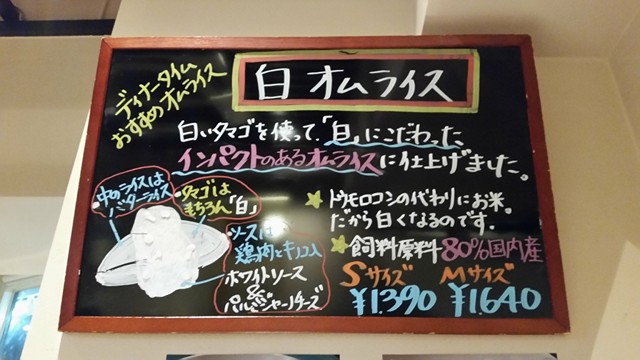 ディナータイム
おすすめオムライス
白オムライス
白いタマゴを使って、「白」にこだわった
インパクトのあるオムライスに仕上げました。
中のライスは
バターライス
タマゴは
もちろん「白」
ソースは
鶏肉とキノコ入
ホワイトソース
&
パルミジャーノチーズ
★トウモロコシの代わりにお米。
だから白くなるのです。
★飼料原料80%国内産
Sサイズ Mサイズ
¥1.390 ¥1.640